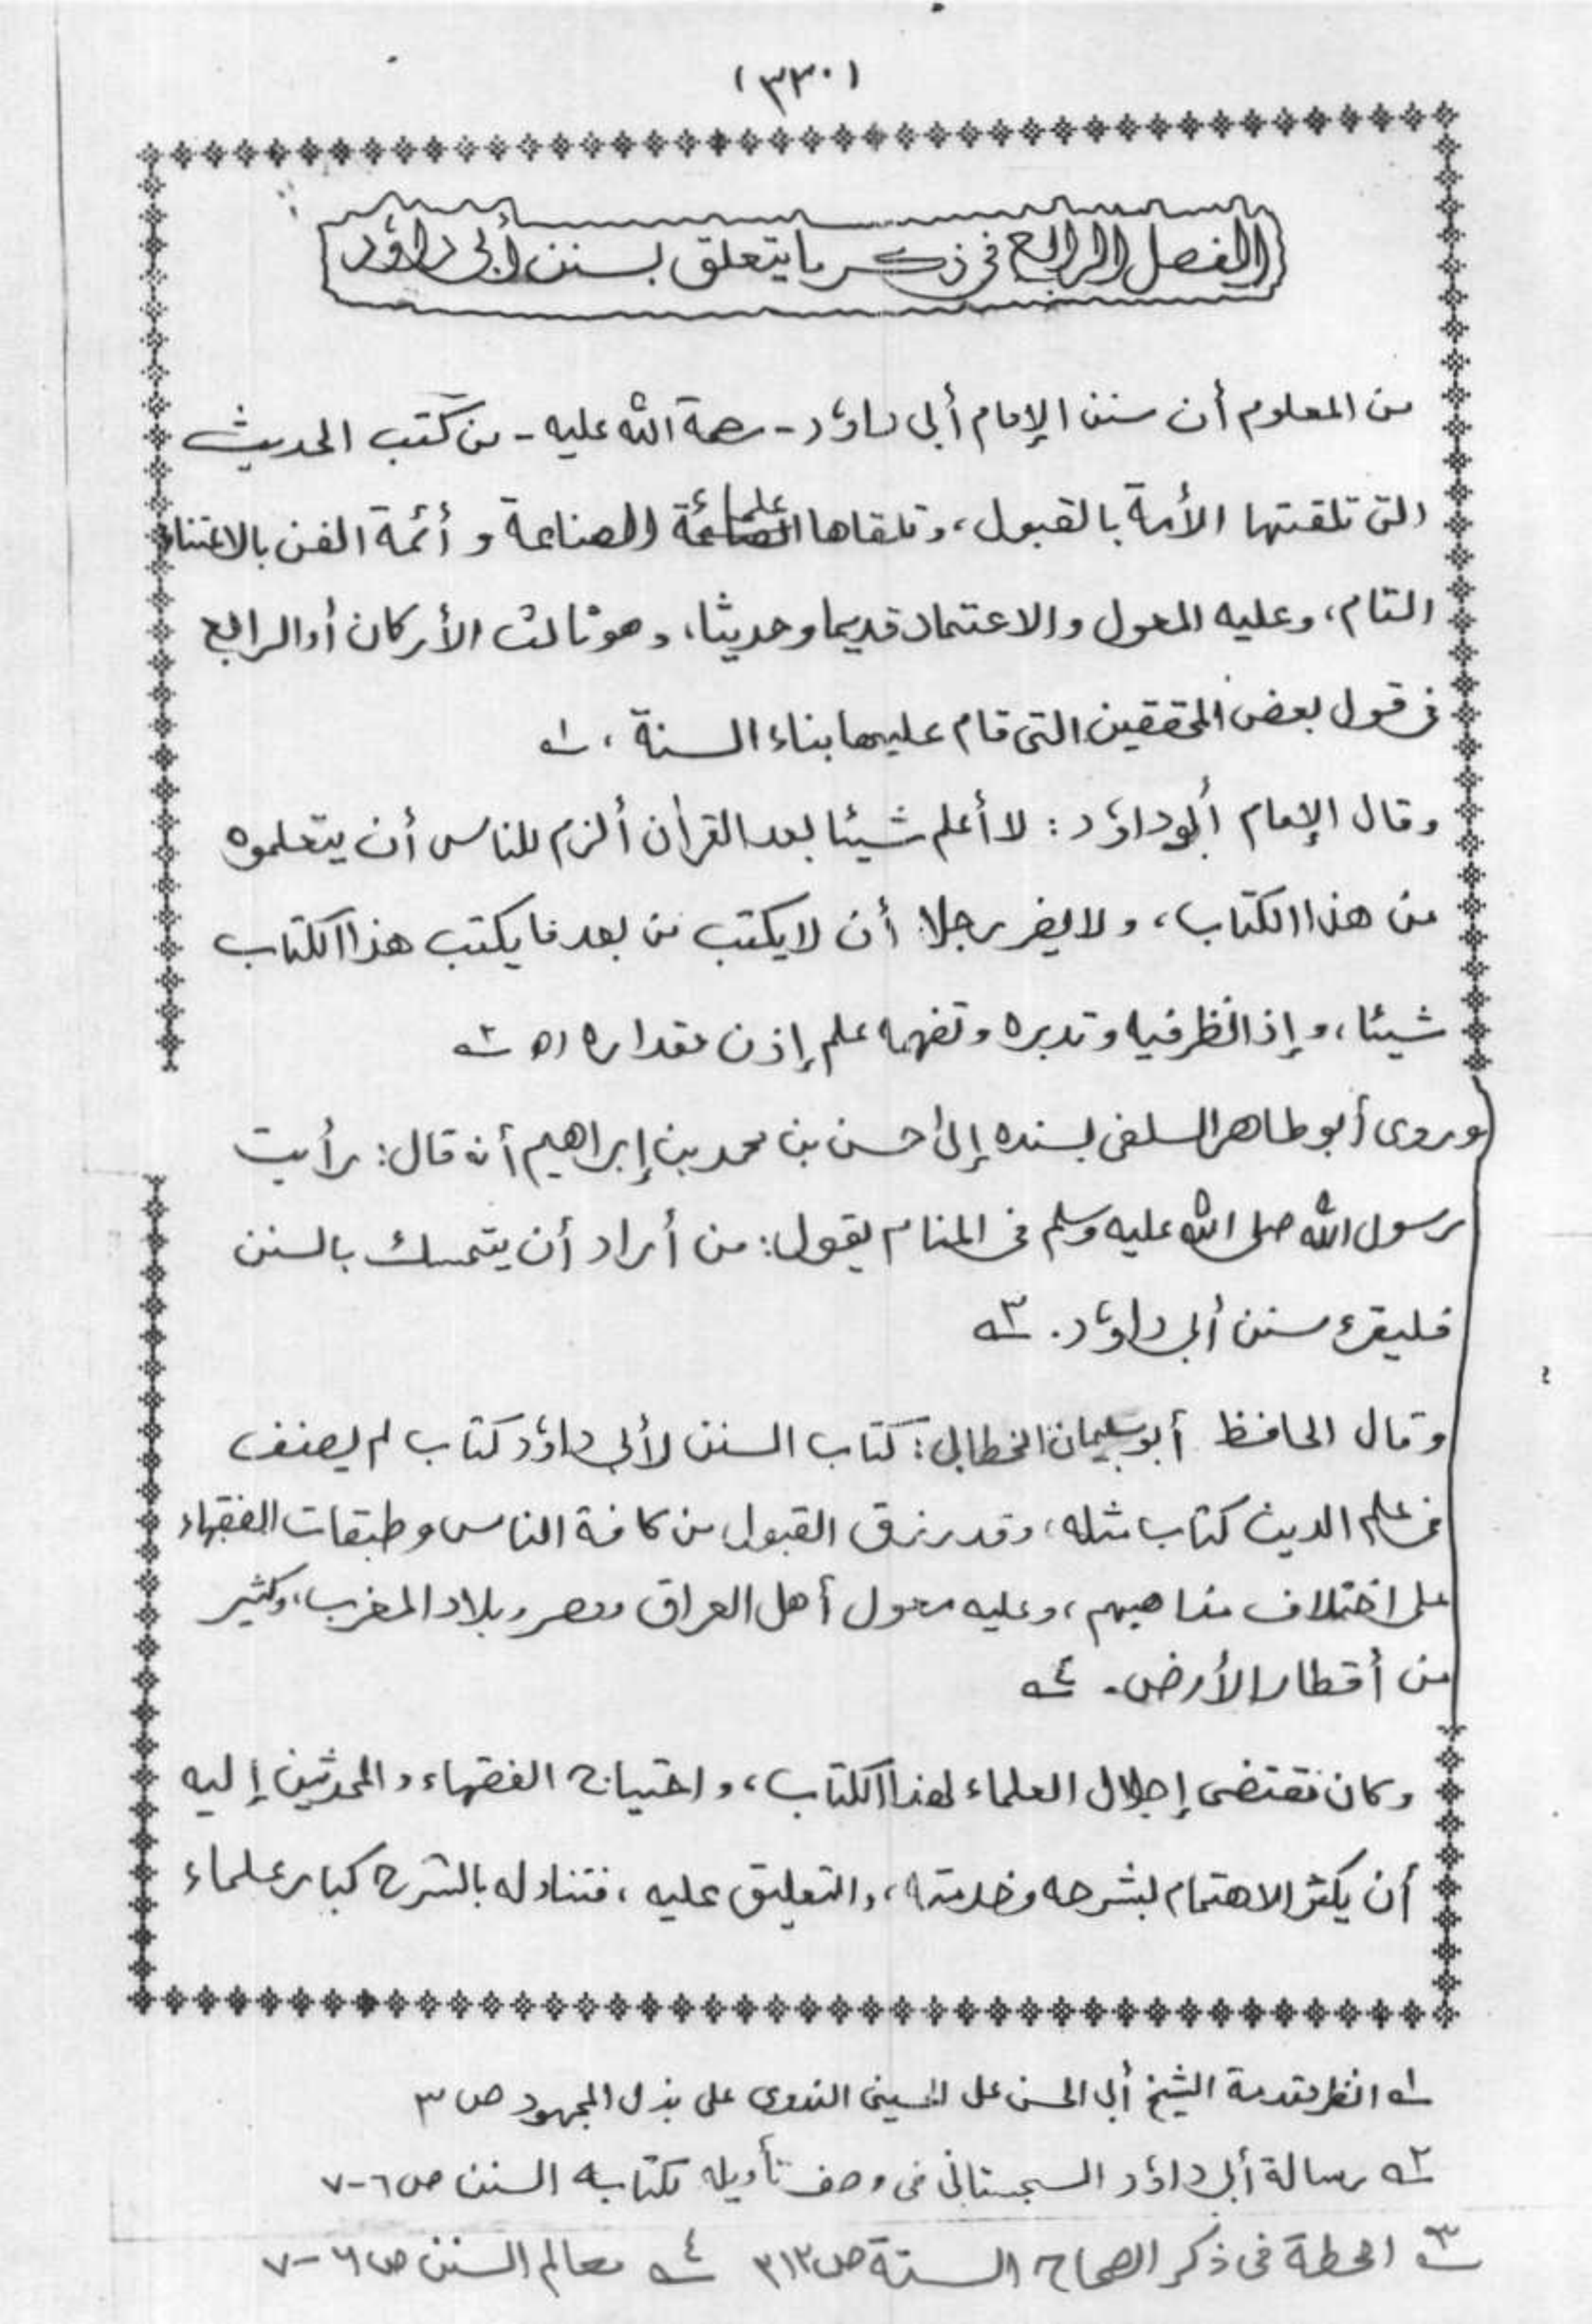 (٣٣٠)
الفصل الرابع في ذكر ما يتعلق بسنن أبي داؤد
من المعلوم أن سنن الإمام أبي داؤد - رحمة الله عليه - من كتب الحديث
التي تلقتها الأمة بالقبول، وتلقاها علماء الصناعة و أئمة الفن بالاعتناء
التام، وعليه المعول والاعتماد قديما وحديثا، وهو ثالث الأركان أو الرابع
في قول بعض المحققين التي قام عليها بناء السنة، ١ه
وقال الإمام أبو داؤد : لا أعلم شيئا بعد القرأن ألزم للناس أن يتعلموه
من هذا الكتاب، ولا يضر رجلا أن لا يكتب من بعد ما يكتب هذا الكتاب
شيئا، وإذا نظر فيه وتدبره وتفهمه علم إذن مقداره اه ٢ه
وروى أبو طاهر السلفي بسنده إلى حسن بن محمد بن إبراهيم أنه قال: رأيت
رسول الله صلى الله عليه وسلم في المنام يقول: من أراد أن يتمسك بالسنن
فليقرء سنن أبي داؤد. ٣ه
وقال الحافظ أبو سليمان الخطابي: كتاب السنن لأبي داؤد كتاب لم يصنف
في علم الدين كتاب مثله، وقد رزق القبول من كافة الناس وطبقات الفقهاء
على اختلاف مذاهبهم، وعليه معول أهل العراق ومصر وبلاد المغرب، وكثير
من أقطار الأرض. ٤ه
وكان مقتضى إجلال العلماء لهذا الكتاب، واحتياج الفقهاء والمحدثين إليه
أن يكثر الاهتمام بشرحه وخدمته، والتعليق عليه، فتناوله بالشرح كبار علماء
١ه انظر مقدمة الشيخ أبي الحسن علي الحسيني الندوي على بذل المجهود ص ٣
٢ه رسالة أبي داؤد السجستاني في وصف تأويله لكتابه السنن ص ٦-٧
٣ه الحطة في ذكر الصحاح الستة ص ٢١٣ ٤ه معالم السنن ص ٦-٧